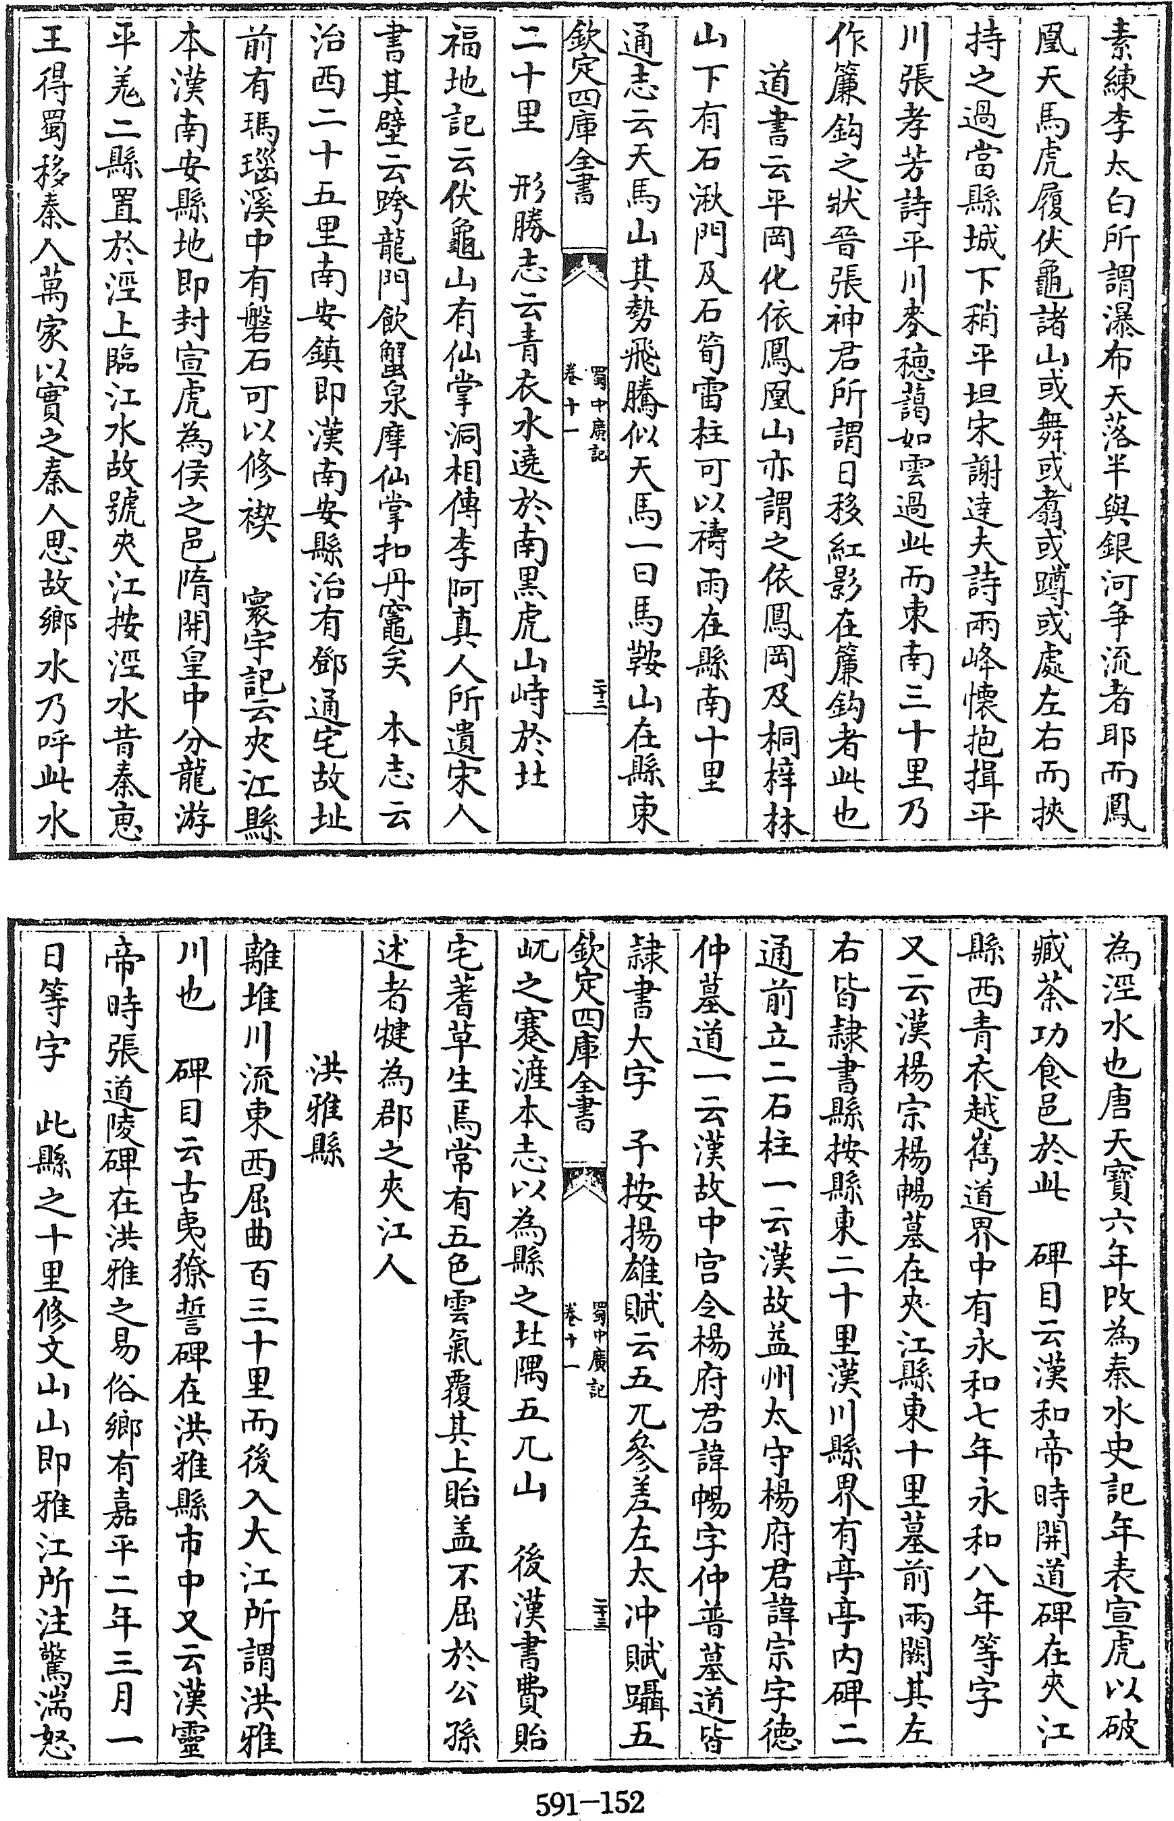 素練李太白所謂瀑布天落半與銀河爭流者耶而鳳
凰天馬虎履伏龜諸山或舞或翥或蹲或處左右而挾
持之過當縣城下稍平坦宋謝達夫詩兩峰懷抱揖平
川張孝芳詩平川麥穗藹如雲過此而東南三十里乃
作簾鈎之狀晉張神君所謂日移紅影在簾鈎者此也
道書云平岡化依鳳凰山亦謂之依鳳岡及桐梓林
山下有石湫門及石筍雷柱可以禱雨在縣南十里
通志云天馬山其勢飛騰似天馬一曰馬鞍山在縣東
欽定四庫全書
蜀中廣記
卷十一
二十二
二十里 形勝志云青衣水遶於南黑虎山峙於北
福地記云伏龜山有仙掌洞相傳李阿真人所遺宋人
書其壁云跨龍門飲蟹泉摩仙掌扣丹竈矣 本志云
治西二十五里南安鎮即漢南安縣治有鄧通宅故址
前有瑪瑙溪中有磐石可以修禊 寰宇記云夾江縣
本漢南安縣地即封宣虎為侯之邑隋開皇中分龍游
平羌二縣置於涇上臨江水故號夾江按涇水昔秦惠
王得蜀移秦人萬家以實之秦人思故鄉水乃呼此水
為涇水也唐天寶六年改為秦水史記年表宣虎以破
臧荼功食邑於此 碑目云漢和帝時開道碑在夾江
縣西青衣越嶲道界中有永和七年永和八年等字
又云漢楊宗楊暢墓在夾江縣東十里墓前兩闕其左
右皆隸書縣按縣東二十里漢川縣界有亭亭內碑二
通前立二石柱一云漢故益州太守楊府君諱宗字德
仲墓道一云漢故中宫令楊府君諱暢字仲普墓道皆
隸書大字 予按揚雄賦云五兀參差左太冲賦躡五
欽定四庫全書
蜀中廣記
卷十一
二十三
屼之蹇滻本志以為縣之北隅五兀山 後漢書費貽
宅蓍草生焉常有五色雲氣覆其上貽盖不屈於公孫
述者犍為郡之夾江人
洪雅縣
離堆川流東西屈曲百三十里而後入大江所謂洪雅
川也 碑目云古夷獠誓碑在洪雅縣市中又云漢靈
帝時張道陵碑在洪雅之易俗鄉有嘉平二年三月一
日等字 此縣之十里修文山山即雅江所注驚湍怒
591-152